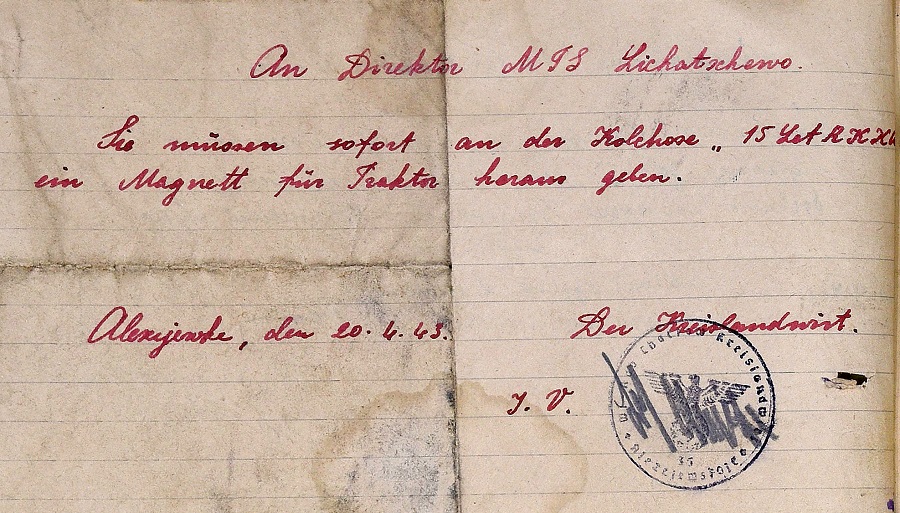 An Direktor MTS Lichatschewo.
Sie müssen sofort an der Kolchose „ 15 Let R K K
ein Magnett für Traktor heraus geben.
Alexejewke, den 20. 4. 43.
Der Kreislandwirt.
J. V.
Kreislandw
36